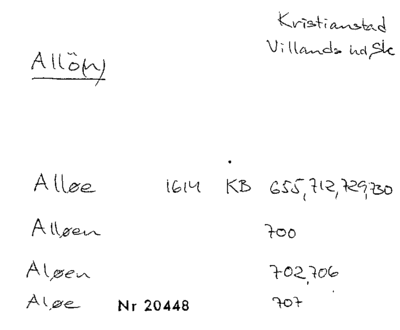 Kristianstad
Villands hd, Sk
Allö(n)
Alløe 1614 KB 655, 712, 729, 730
Alløen 700
Aløen 702, 706
Aløe Nr 20448 707